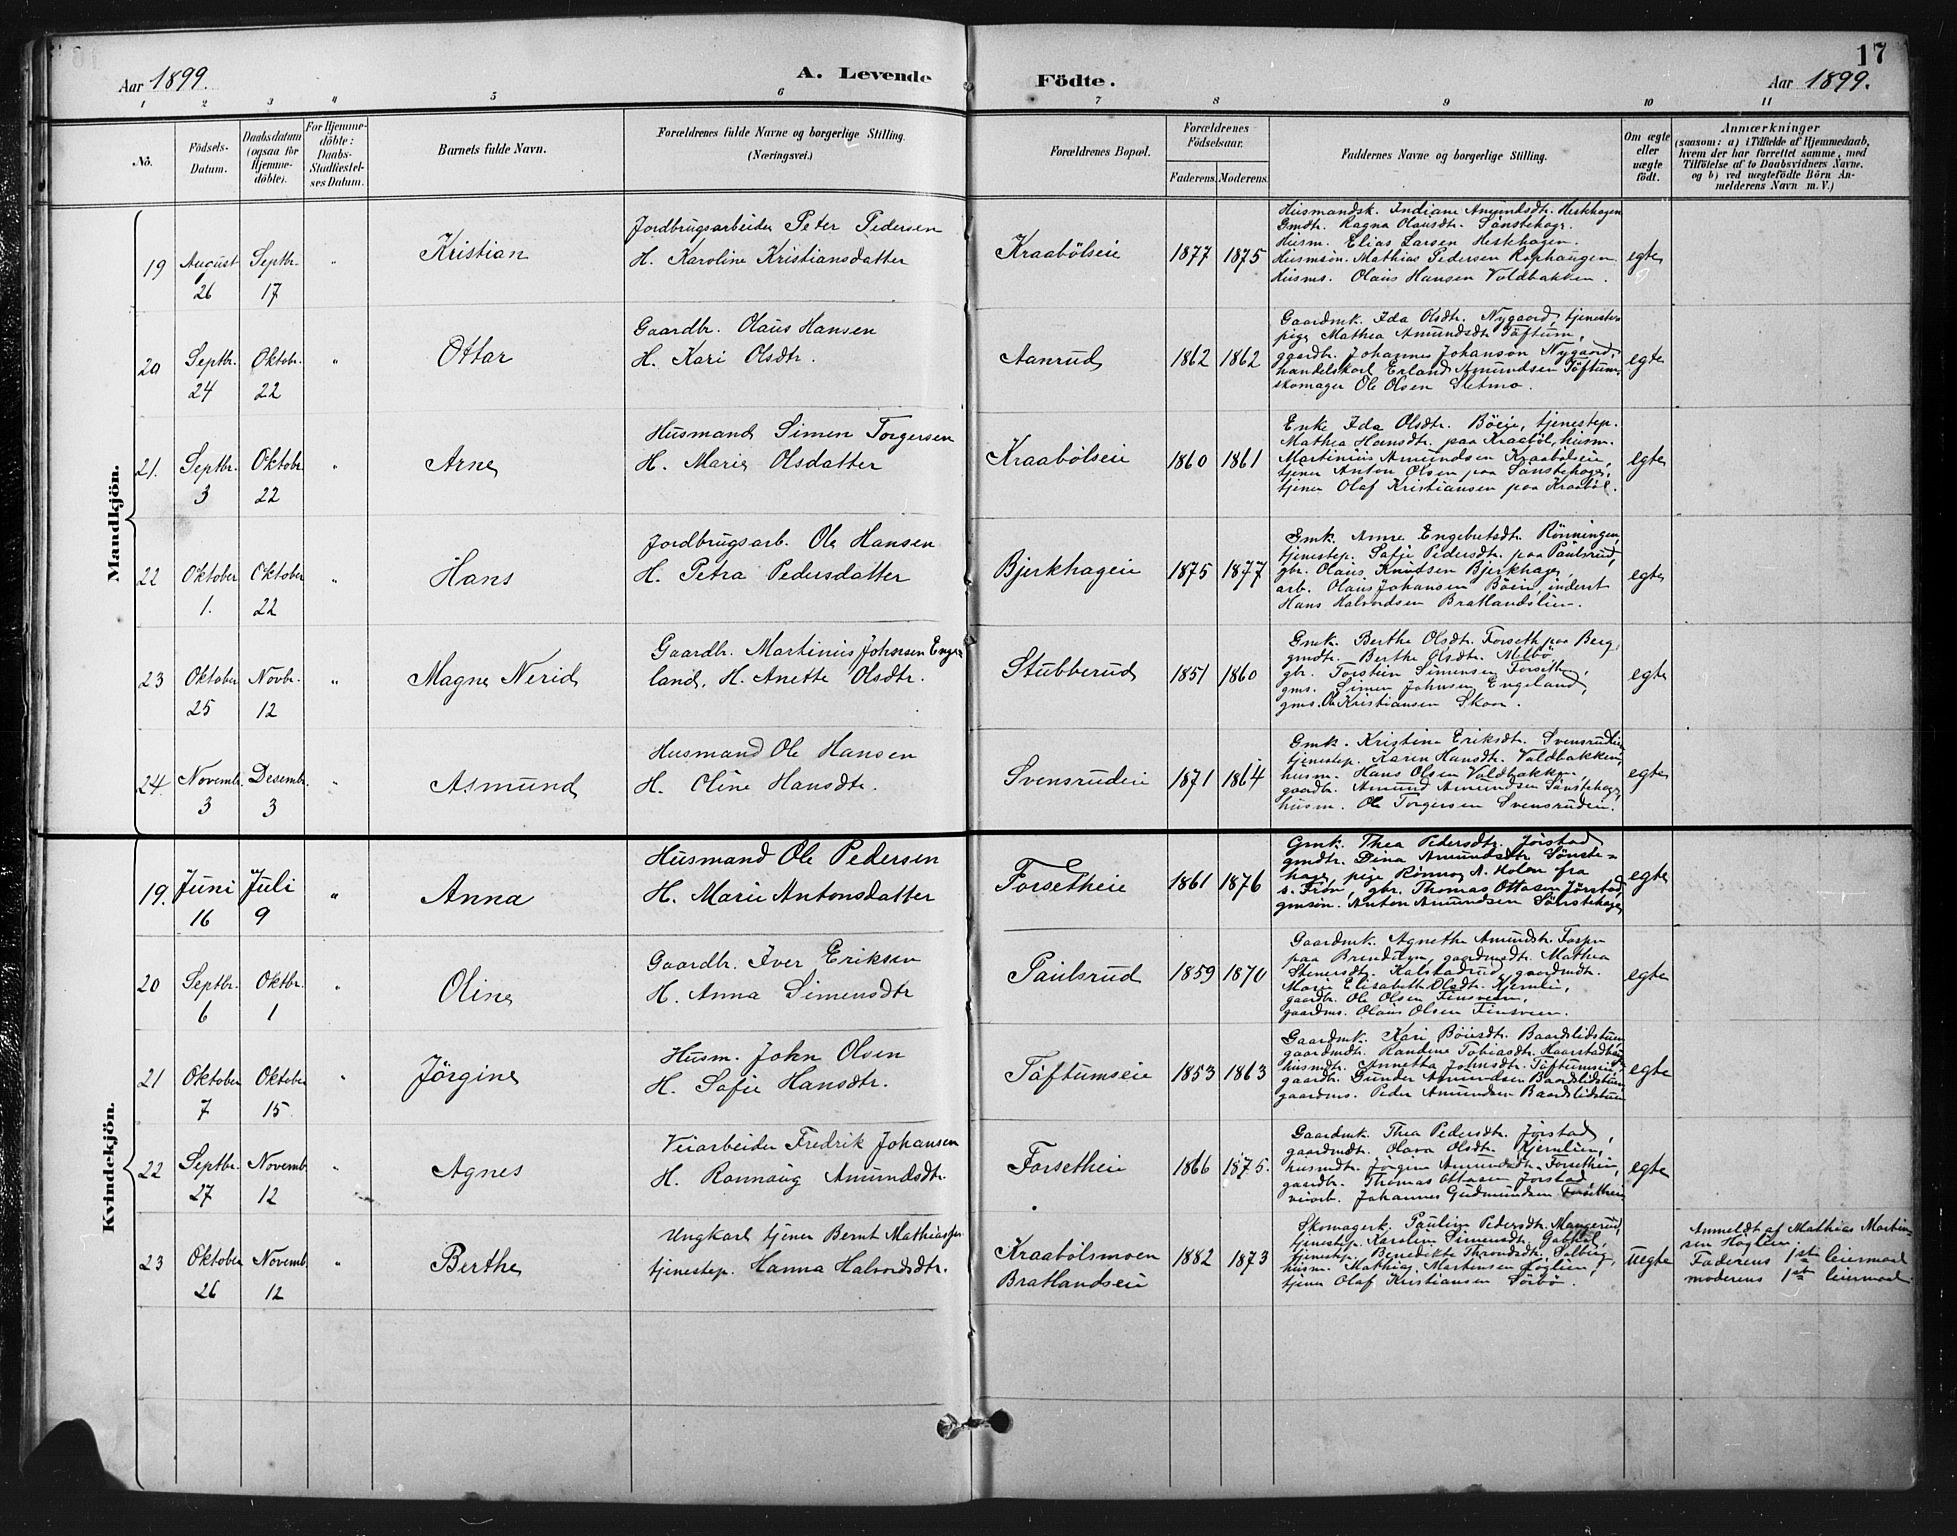 17
Aar 1899.
A. Levende Födte.
Aar 1899.
1 2 3 4 5 6 7 8 9 10 11
No.
Födsels-Datum.
Daabsdatum (ogsaa for Hjemme-döbte).
For Hjemme-döbte: Daabs-Stadfæstel-ses Datum.
Barnets fulde Navn.
Forældrenes fulde Navne og borgerlige Stilling.
(Næringsvei.)
Forældrenes Bopæl.
Forældrenes Födselsaar.
Faderens. Moderens.
Faddernes Navne og borgerlige Stilling.
Om ægte eller uægte født.
Anmærkninger
(saasom: a) i Tilfælde af Hjemmedaab, hvem der har forrettet samme, med Tilföielse af to Daabsvidners Navne. og b) ved uægtefödte Börn An-melderens Navn m. V.)
Mandkjön.
19 August 26 Septbr. 17 " Kristian
Jordbrugsarbeider Peter Pedersen
H. Karoline Kristiansdatter
Kraabölseie 1877 1875
Husmandsk. Indiane Amundsdtr. Hestehagen
Gmdtr. Ragna Olausdtr. Sönstehage.
Husm. Elias Larsen Hestehagen.
Husmsön. Mathias Pedersen Rophaugen
Husms. Olaus Hansen Voldbakken.
egte
20 Septbr. 24 Oktobr. 22 " Ottar
Gaardbr. Olaus Hansen
H. Kari Olsdtr.
Aanrud 1862 1862
Gaardmk. Ida Olsdtr. Nygaard, tjeneste-
pige Mathea Amundsdtr. Töftum,
gaardbr. Johannes Johanson Nygaard,
handelskarl Erland Amundsen Töftum,
skomager Ole Olsen Sletmo.
egte
21. Septbr. 3 Oktobr. 22 " Arne
Husmand Simen Torgersen
H. Marie Olsdatter
Kraabölseie 1860 1861
Enke Ida Olsdtr. Böeie, tjenestep.
Mathea Hansdtr. paa Kraaböl, husm.
Martinius Amundsen Kraabölseie,
tjener Anton Olsen paa Sönstehage,
tjener Olaf Kristiansen paa Kraaböl.
egte
22 Oktober 1. Oktober 22 " Hans
Jordbrugsarb. Ole Hansen
H. Petra Pedersdatter
Bjerkhageie 1875 1877
Gmk. Anne Engebretsdtr. Rönningen,
tjenestep. Sofie Pedersdtr. paa Paulsrud,
gbr. Olaus Knudsen Bjerkhage,
arb. Olaus Johansen Böeie, inderst
Hans Halvordsen Bratlandslien.
egte
23 Oktober 25 Novbr. 12 " Magne Nerid
Gaardbr. Martinius Johnsen Enge-
land, H. Anette Olsdtr.
Stubberud 1851 1860
Gmk. Berthe Olsdtr. Forseth paa Berg
gmdtr. Berthe Olsdtr. Melbö
gbr. Torstein Simensen Forseth,
gms. Simen Johnsen Engeland,
gms. Ole Kristiansen Skaar.
egte
24. Novemb. 3 Desemb. 3 " Asmund
Husmand Ole Hansen
H. Oline Hansdtr.
Svensrudeie 1871 1864
Gmk. Kristine Eriksdtr. Svensrudlien
tjenestep. Karen Hansdtr. Voldbakken,
husm. Hans Olsen Voldbakken,
gaardbr. Amund Amundsen Sönstehage,
husm. Ole Torgersen Svensrudeie.
egte
Kvindekjön.
19. Juni 16 Juli 9 " Anna
Husmand Ole Pedersen
H. Marie Antonsdatter
Forsetheie 1861 1876
Gmk. Thea Pedersdtr. Jörstad
gmdtr. Dina Amundsdtr. Sönste-
hage, pige Rönnog A. Holen fra
s. Fron, gbr. Thomas Ottosen Jörstad,
gmsön. Anton Amundsen Sönstehage
egte
20 Septbr. 6 Oktbr. 1 " Oline
Gaardbr. Iver Eriksen
H. Anna Simensdtr
Paulsrud 1859 1870
Gaardmk. Agnethe Amundsdtr.
paa gaardmdtr. Mathea
Stenersdtr. Kalstadrud, gaardmdtr.
Marie Elisabeth Olsdtr. Kjernlie,
gaardbr. Ole Olsen Finsveen,
gaardms. Olaus Olsen Finsveen.
egte
21 Oktober 7 Oktober 15. " Jörgine
Husm. John Olsen
H. Sofie Hansdtr.
Töftumseie 1853 1863
Gaardmk. Kari Böiesdtr. Baardslidstuen
gaardmdtr. Randine Tobiasdtr.
husmdtr. Annetta Johnsdtr. Töftumseie,
gaardbr. Gunder Amundsen Baardslidstuen
gaardms. Peder Amundsen Baardslidstuen
egte
22 Septbr. 27 Novemb 12 " Agnes
Veiarbeider Fredrik Johansen
H. Ronnaug Amundsdtr.
Forsetheie 1866 1875.
Gaardmk. Thea Pedersdtr. Jörstad,
gaardmdtr. Olava Olsdtr. Kjernlien,
husmdtr. Jörgine Amundsdtr. Forsetheie,
gaardbr. Thomas Ottosen Jörstad,
veiarb. Johannes Gudmundsen Forsetheie
egte
23 Oktober 26 Novemb. 12 " Berthe
Ungkarl tjener Bernt Mathiassen
tjenestep. Hanna Halvordsdtr.
Kraabölsmoen
Bratlandseie
1882 1873
Skomagerk. Pauline Pedersdtr. Mangerud,
tjenestep. Karoline Simensdtr. Gobhol,
tjenestep. Benedikte Throndsdtr. Solberg,
husm. Mathias Martinsen Höglien,
tjener Olaf Kristiansen Sörbö.
uegte
Anmeldt af Mathias Martin-
sen Höglien.
Faderens 1ste leiermaal
moderens 1ste leiermaal.